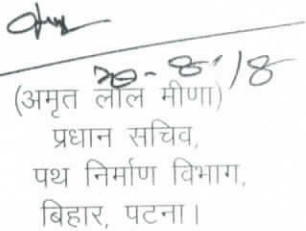 20-8-18
(अमृत लाल मीणा)
प्रधान सचिव,
पथ निर्माण विभाग,
बिहार, पटना।